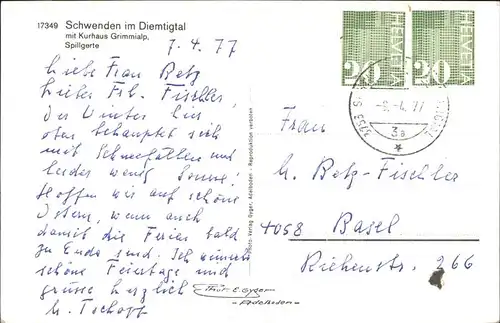 17349 Schwenden im Diemtigtal
mit Kurhaus Grimmialp,
Spillgerte
7. 4. 77
Liebe Frau Betz
Liebes Frl. Fischler,
Der Winter hier
oben behauptet sich
mit Schneefällen und
leider wenig Sonne.
Hoffen wir auf schöne
Ostern, wenn auch
damit die Ferien bald
zu Ende sind. Ich wünsche
schöne Feiertage und
grüsse herzlich
Photo-Verlag Gyger, Adelboden - Reproduktion verboten
Phot. E. Gyger
Adelboden
HELVETIA
20
HELVETIA
20
3753
Frau
Betz-Fischler
4058 Basel
Riehenstr. 266